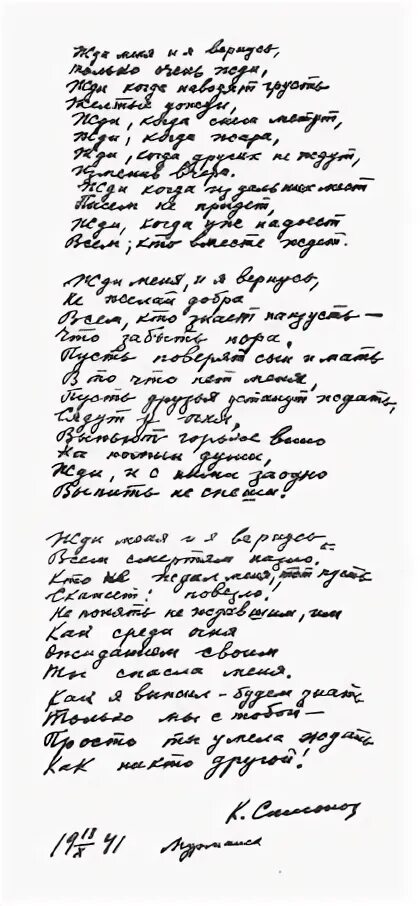 Жди меня и я вернусь,
только очень жди,
Жди когда наводят грусть
Желтые дожди,
Жди, когда снега метут,
Жди, когда жара,
Жди, когда других не ждут,
Изменив вчера.
Жди когда из дальних мест
Писем не придет,
Жди, когда уже надоест
Всем, кто вместе ждет.
Жди меня, и я вернусь,
Не желай добра
Всем, кто знает наизусть —
Что забыть пора.
Пусть поверят сын и мать
В то что нет меня,
Пусть друзья устанут ждать,
Сядут у огня,
Выпьют горькое вино
На помин души,
Жди, и с ними заодно
Выпить не спеши!
Жди меня и я вернусь
Всем смертям назло.
Кто не ждал меня, тот пусть
Скажет: повезло.
Не понять не ждавшим, им
Как среди огня
Ожиданием своим
Ты спасла меня.
Как я выжил - будем знать
Только мы с тобой —
Просто ты умела ждать
Как никто другой!
К. Симонов
19 18/X 41 Мурманск